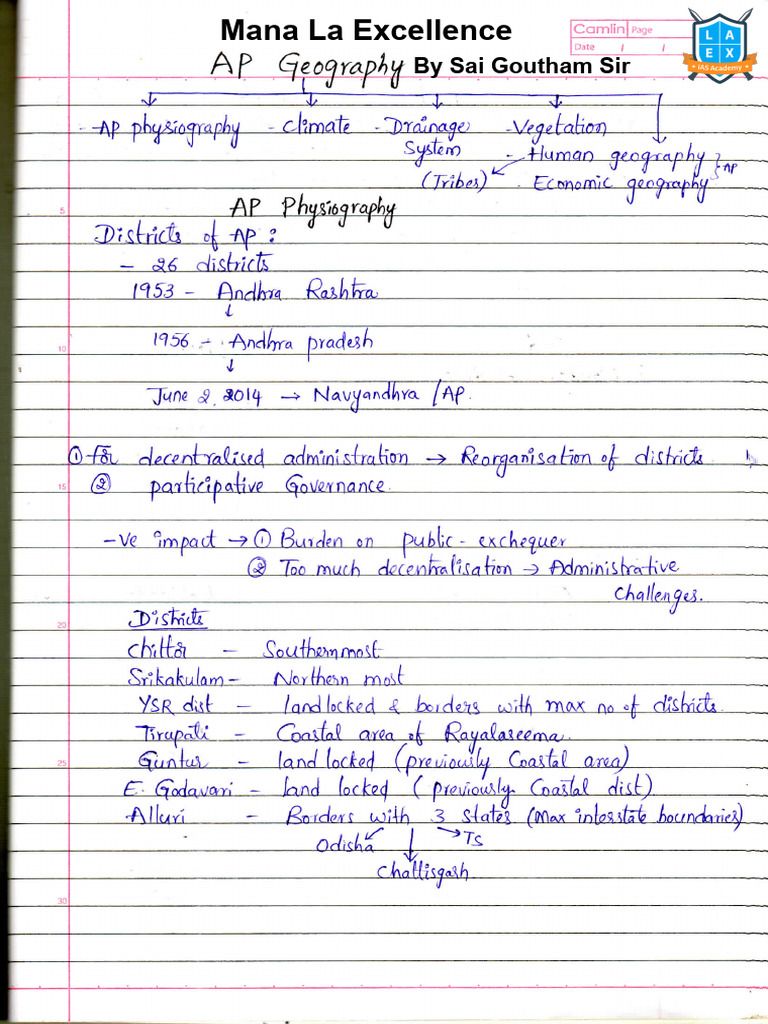 Mana La Excellence
Camlin Page
Date / /
L A
E X
IAS Academy
AP Geography By Sai Goutham Sir
- AP physiography - Climate - Drainage System - Vegetation
- Human geography
(Tribes) - Economic geography } AP
5
AP Physiography
Districts of AP :
- 26 districts
1953 - Andhra Rashtra
↓
10
1956 - Andhra pradesh
↓
June 2, 2014 → Navyandhra / AP.
① for decentralised administration → Reorganisation of districts.
15
② participative Governance.
-ve impact → ① Burden on public - exchequer
② Too much decentralisation → Administrative
challenges.
20
Districts
Chittor - Southernmost
Srikakulam - Northern most
YSR dist - landlocked & borders with max no of districts.
Tirupati - Coastal area of Rayalaseema.
25
Guntur - land locked (previously Coastal area)
E. Godavari - land locked (previously Coastal dist)
Alluri - Borders with 3 states (Max interstate boundaries)
Odisha ↓ TS
Chattisgarh
30